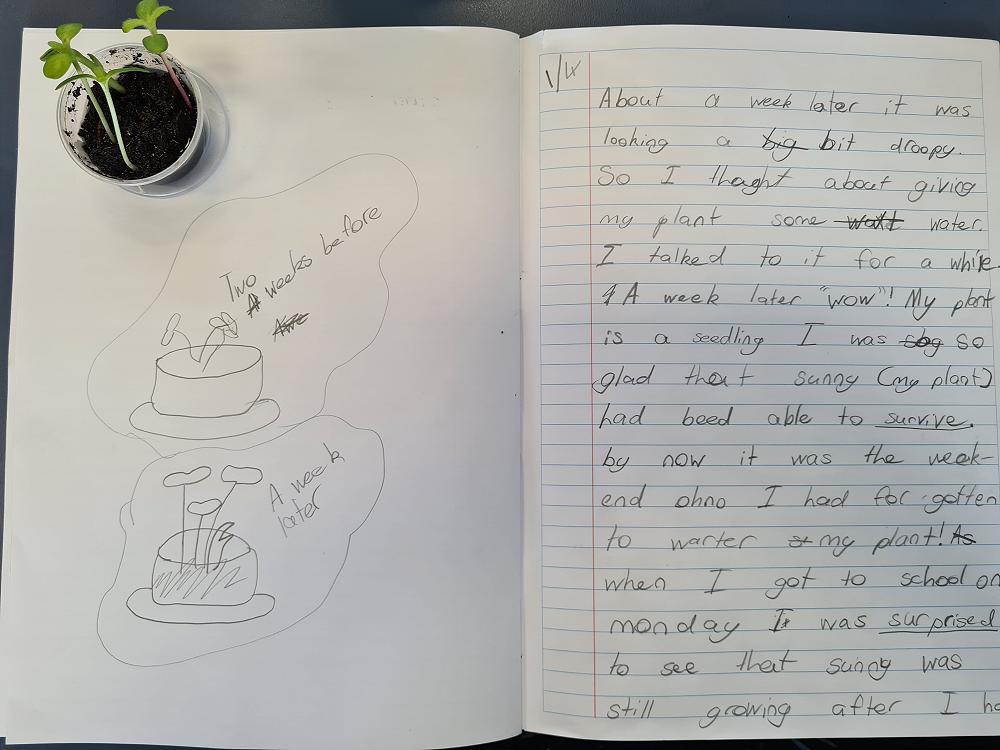 Two
weeks before
A week
later
About a week later it was
looking a big bit droopy.
So I thaght about giving
my plant some watt water.
I talked to it for a while.
A week later "wow"! My plant
is a seedling I was so
glad that sunny (my plant)
had beed able to survive.
by now it was the week-
end ohno I had for gotten
to warter my plant! As
when I got to school on
monday I was surprised
to see that sunny was
still growing after I